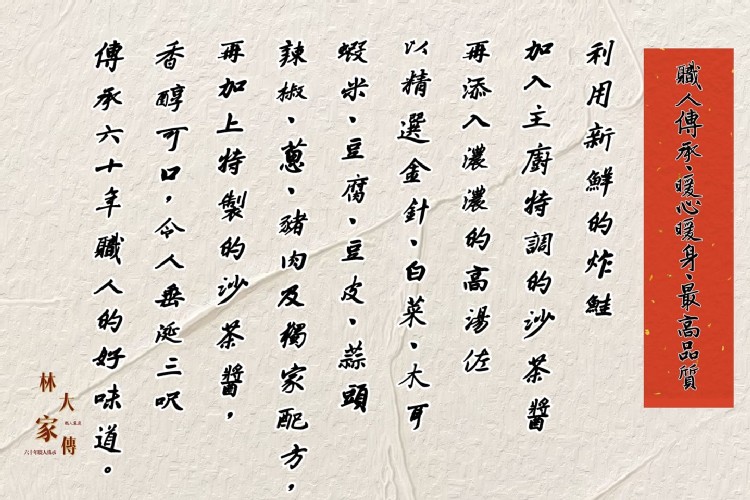 職人傳承、暖心暖身、最高品質
利用新鮮的炸鮭
加入主廚特調的沙茶醬
再添入濃濃的高湯佐
以精選金針、白菜、木耳
蝦米、豆腐、豆皮、蒜頭
辣椒、蔥、豬肉及獨家配方，
再加上特製的沙茶醬，
香醇可口，令人垂涎三呎
傳承六十年職人的好味道。
林家
大傳
六十年職人傳承